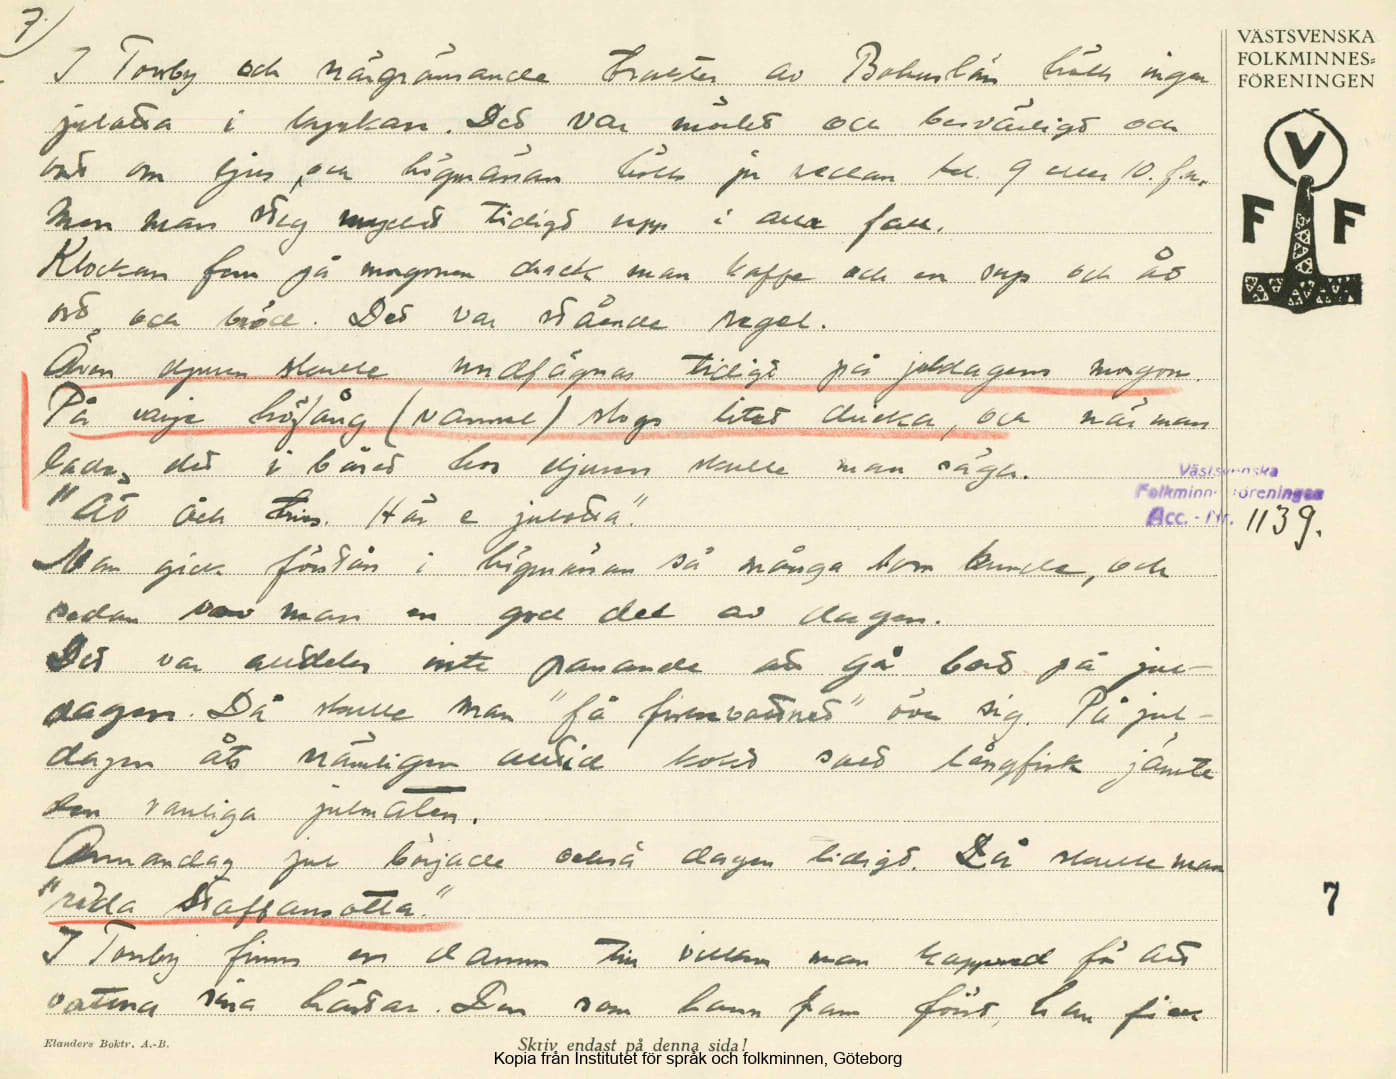 7.
VÄSTSVENSKA
FOLKMINNES-
FÖRENINGEN
V
F F
I Torsby och närgränsande trakter av Bohuslän hölls ingen
julotta i kyrkan. Det var mörkt och besvärligt och
ont om ljus, och högmässan hölls ju redan kl. 9 eller 10. f.m.
Men man steg mycket tidigt upp i alla fall.
Klockan fem på morgonen drack man kaffe och en sup och åt
ost och bröd. Det var stående regel.
Även djuren skulle undfägnas tidigt på juldagens morgon.
På varje höfång (vamme) slogs litet dricka, och när man
lade det i båset hos djuren skulle man säga.
"Ät och . Här e julotta".
Man gick förstås i högmässan så många som kunde, och
sedan sov man en god del av dagen.
Det var alldeles inte passande att gå bort på jul-
dagen. Då skulle man "få fiskevattnet" över sig. På jul-
dagen åts nämligen alltid kokt salt långfisk jämte
den vanliga julmaten.
Annandag jul började också dagen tidigt. Då skulle man
"rida Staffansotta."
I Torsby finns en damm till vilken man kappred för att
vattna sina hästar. Den som hann fram först, han fick
Västsvenska
Folkminnesföreningen
Acc. - Nr. 1139.
7
Elanders Boktr. A.-B.
Skriv endast på denna sida!
Kopia från Institutet för språk och folkminnen, Göteborg